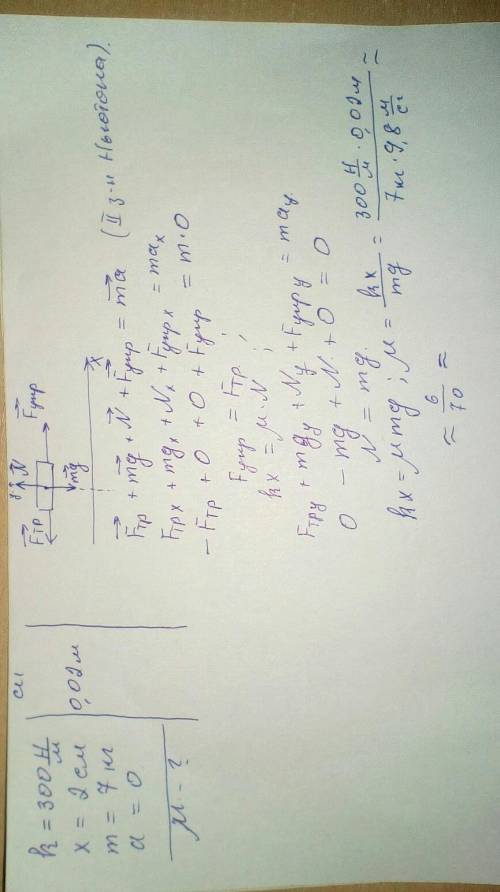 k = 300 Н/м
x = 2 см
m = 7 кг
a = 0
μ – ?
си
0,02 м
y N⃗
F⃗тр F⃗упр
mg⃗
x
F⃗тр + mg⃗ + N⃗ + F⃗упр = ma⃗ (II з-н Ньютона).
Fтрx + mgx + Nx + Fупрx = max
– Fтр + 0 + 0 + Fупр = m·0
Fупр = Fтр ;
kx = μ·N ;
Fтрy + mgy + Ny + Fупрy = may
0 – mg + N + 0 = 0
N = mg.
kx = μmg ; μ = kx/mg = 300 Н/м · 0,02 м / 7 кг · 9,8 м/с² ≈
≈ 6/70 ≈